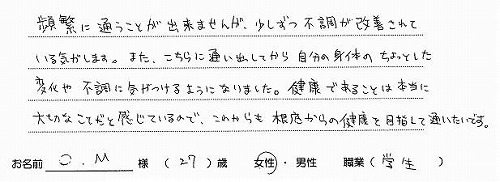 頻繁に通うことが出来ませんが、少しずつ不調が改善されて
いる気がします。また、こちらに通い出してから自分の身体のちょっとした
変化や不調に気がつけるようになりました。健康であることは本当に
大切なことだと感じているので、これからも根底からの健康を目指して通いたいです。
お名前 O.M 様 (27)歳 女性・男性 職業(学生)